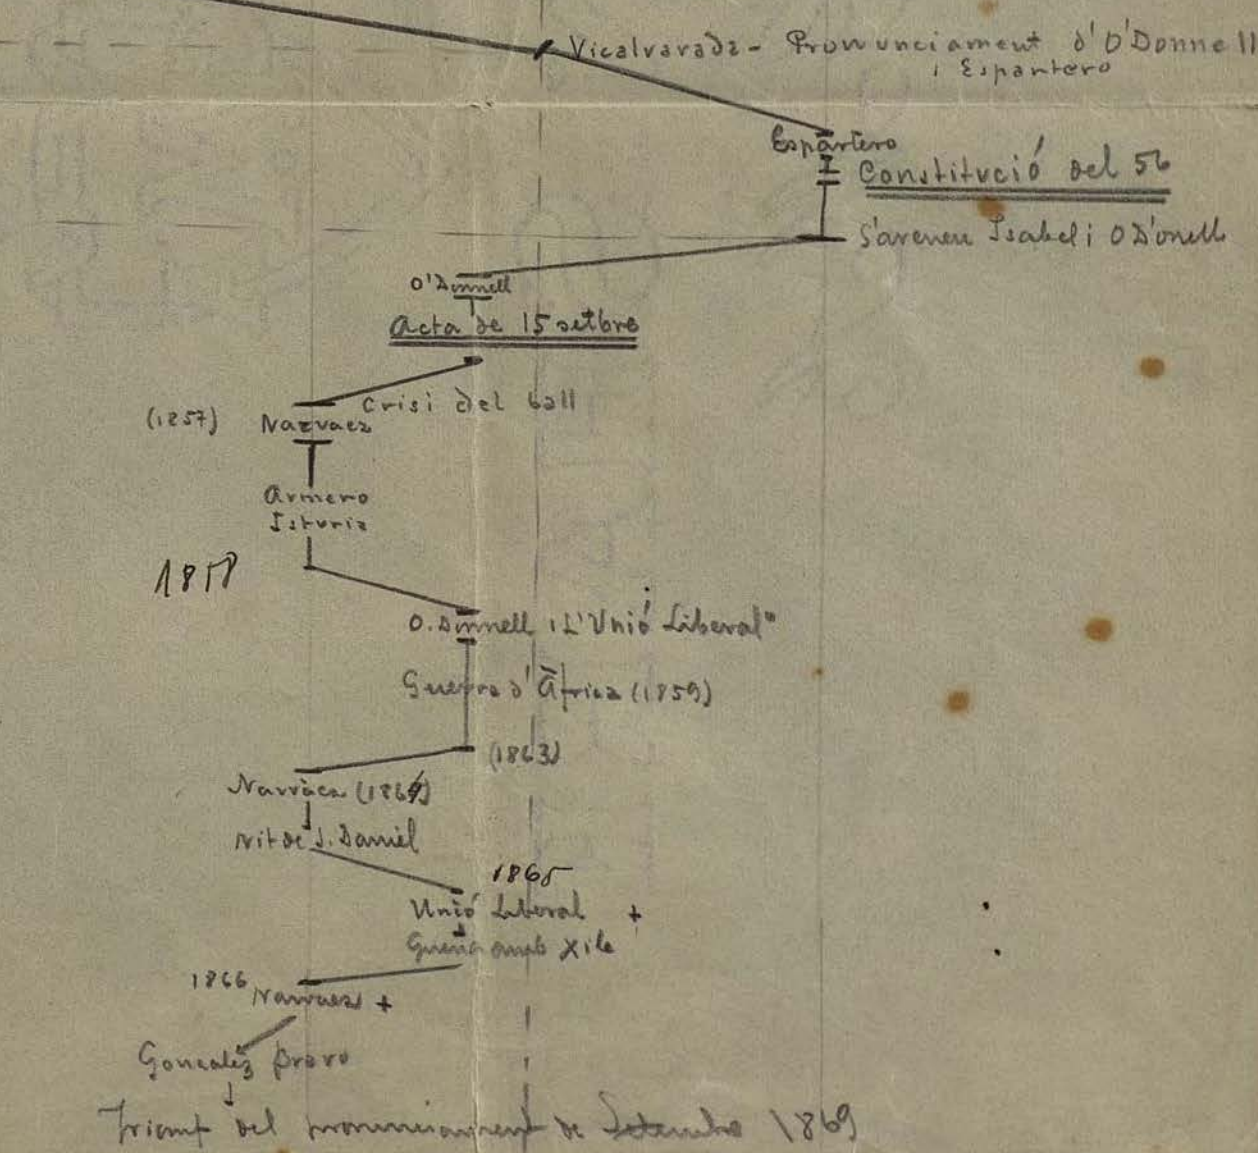 Vicalvarada - Pronunciament d'O'Donnell
i Espartero
Espartero
Constitució del 56
S'avenen Isabel i O D'onell
O'Donnell
Acta de 15 setbre
Crisi del ball
(1857) Narvaez
Armero
Isturiz
1858
O. Donnell i L'Unió Liberal"
Guerra d'Àfrica (1859)
(1863)
Narváez (1864)
Nit de S. Daniel
1865
Unió Liberal +
Guerra amb Xile
1866 Narvaez +
Gonzalez Bravo
Triomf del pronunciament de Setembre 1869